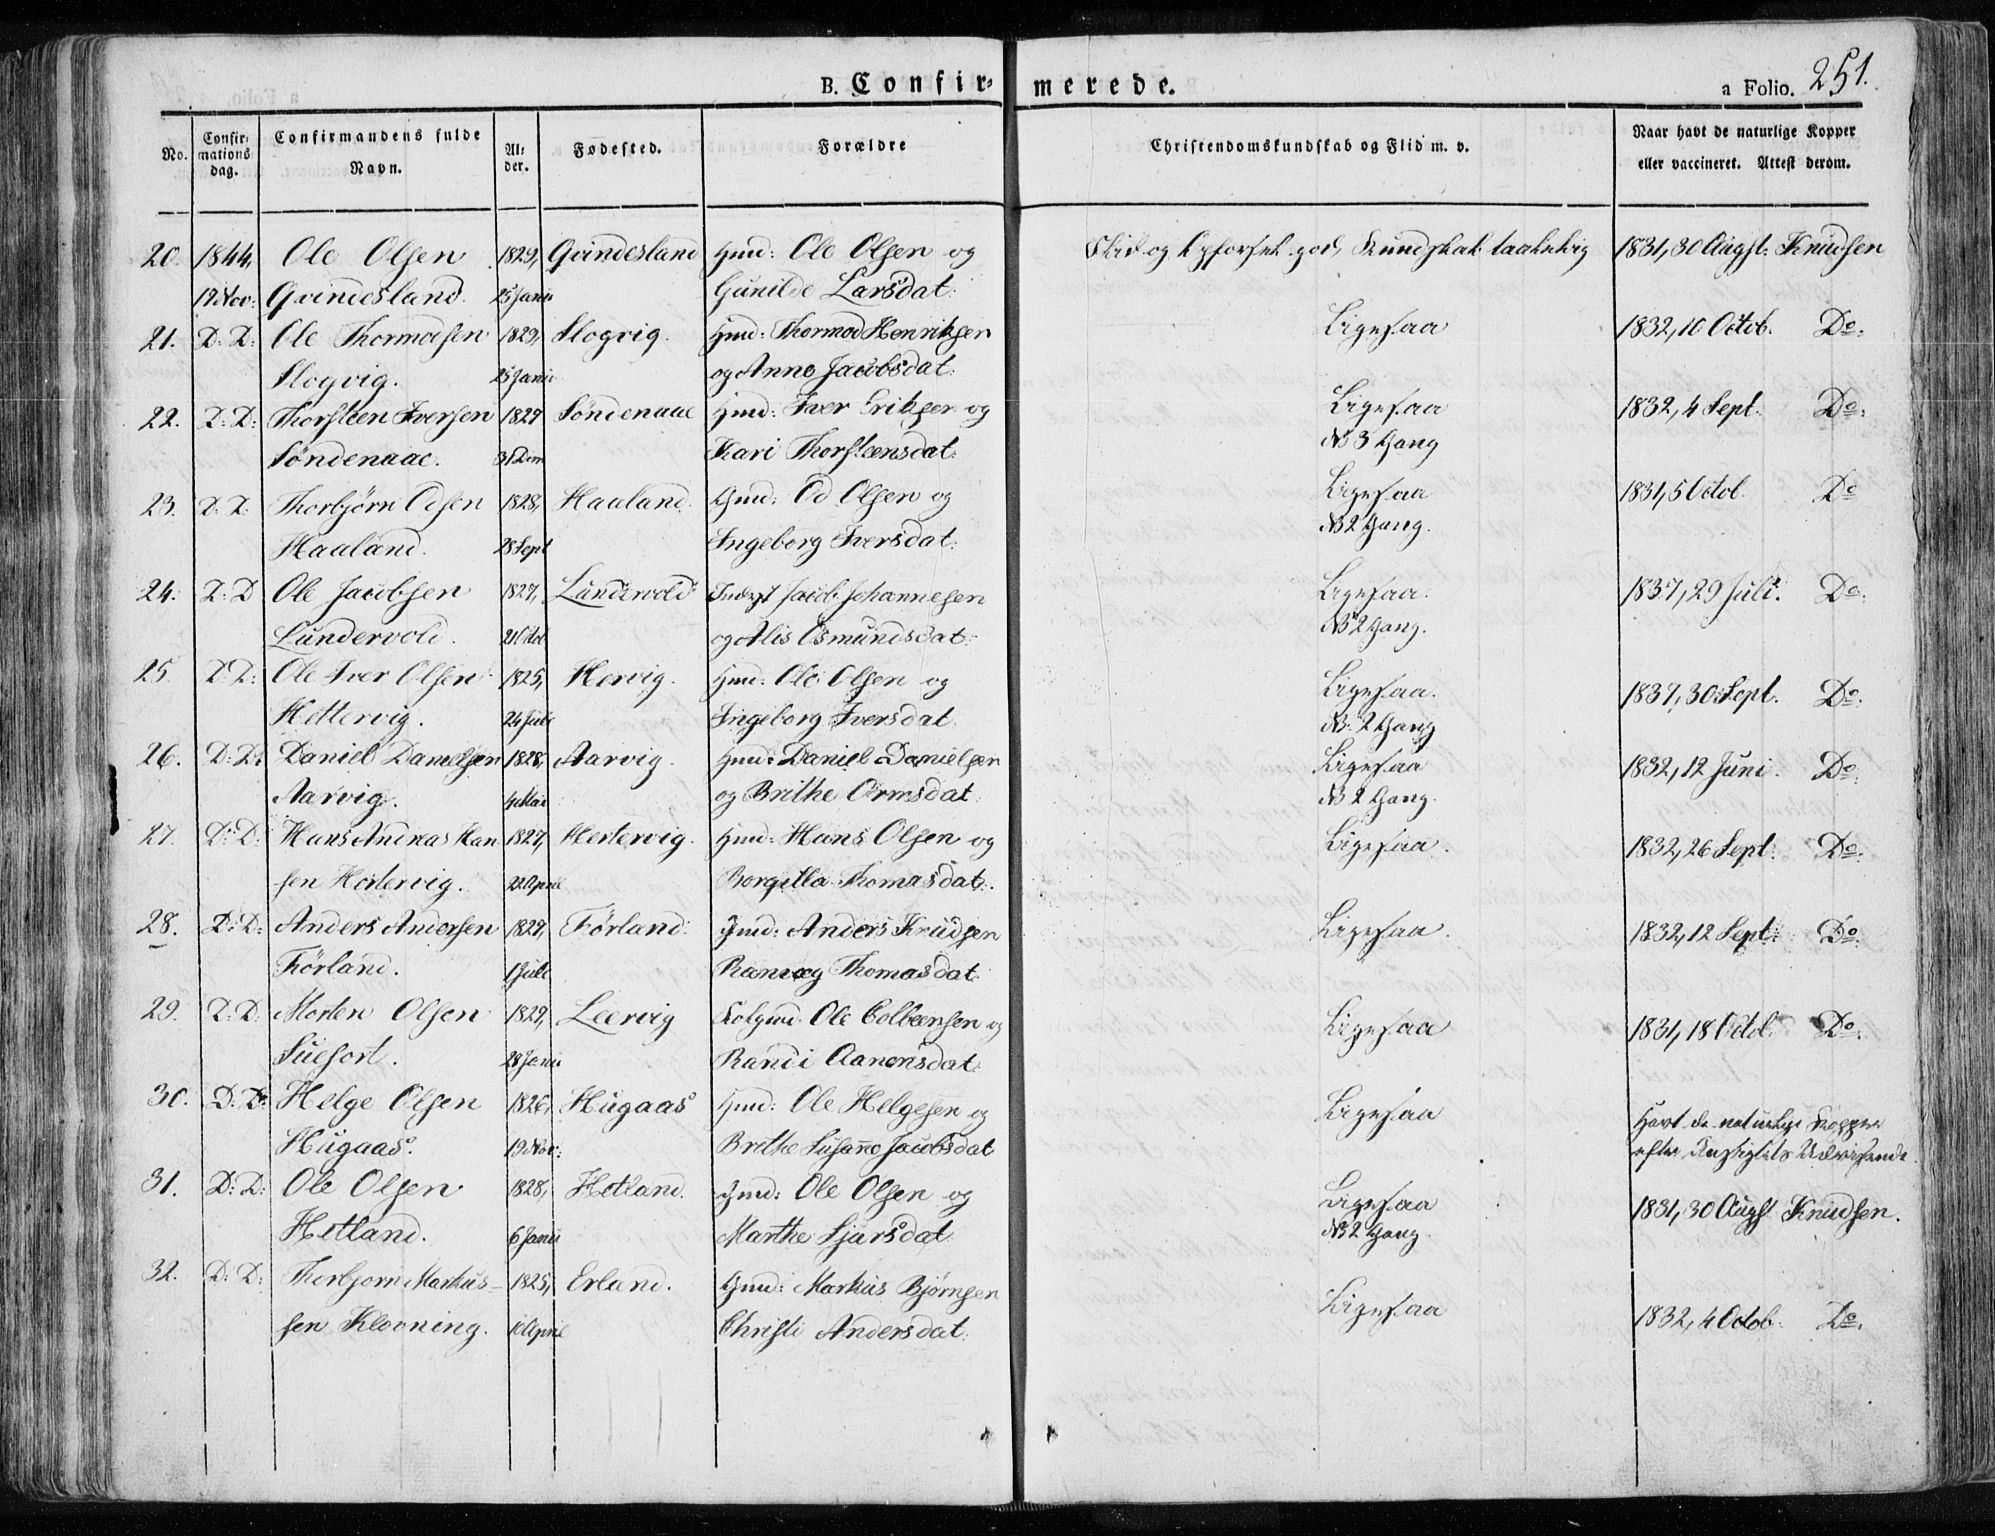 B. Confir- merede. a Folio. 251.
No. Confir- mations- dag. Confirmandens fulde Navn. Al- der. Fødested. Forældre Christendomskundskab og Flid m. v. Naar havt de naturlige Kopper eller vaccineret. Attest derom.
20. 1844, Ole Olsen 1829, Qvindesland Gmd: Ole Olsen og Flid og Opførsel god, Kundskab taalelig 1831, 30 Augst: Knudsen
17 Nov: Qvindesland. 25 Janu Gunilde Larsdat:
21. D: D: Ole Thormodsen 1829, Slogvig. Gmd: Thormod Henriksen Ligesaa 1832, 10 Octob. Do:
Slogvig. 25 Janu og Anne Jacobsdat:
22. D: D: Thorsteen Iversen 1827 Söndenaae Gmd: Iver Eriksen og Ligesaa 1832, 4 Sept. Do:
Söndenaae. 31 Dem Kari Thorsteensdat: NB 3 Gang
23. D: D: Thorbjörn Odsen 1828, Haaland. Gmd: Od Olsen og Ligesaa 1831, 5 Octob. Do
Haaland. 28 Sept Ingeborg Iversdat: NB 2 Gang.
24. D: D Ole Jacobsen 1827, Lundevold Inderst Jacob Johannesen Ligesaa. 1837, 29 Juli. Do:
Lundervold. 21 Octob og Alis Osmundsdat: NB 2 Gang.
25. D D: Ole Iver Olsen 1825, Hervig. Gmd: Ole Olsen og Ligesaa. 1837, 30 Sept. Do:
Hettervig. 24 Juli Ingeborg Iversdat. NB. 2 Gang
26. D: D: Daniel Danielsen 1828, Aarvig. Gmd: Daniel Danielsen Ligesaa 1832, 12 Juni. Do.
Aarvig. 4 Mai og Brithe Ormsdat. NB 2 Gang.
27. D: D: Hans Andreas Han 1827, Hertervig. Gmd: Hans Olsen og Ligesaa. 1832, 26 Sept: Do.
sen Hertervig. 22 April Borgilla Thomasdat:
28. D: D: Anders Andersen 1829, Förland: Gmd: Anders Knudsen Ligesaa. 1832, 12 Sept: Do.
Förland. 1 Juli Ranveg Thomasdat
29. D: D: Morten Olsen 1829, Leervig Ole Colbeensen og Ligesaa 1831, 18 Octob: Do:
Suefort. 28 Janu Randi Aanensdat:
30. D: D: Helge Olsen 1826, Hugaas Gmd: Ole Helgesen og Ligesaa Havt de naturlige Kopper
Hugaas. 19 Nov: Brithe Susanne Jacobsdat efter Ansigtets Udvisende
31. D: D: Ole Olsen 1828, Hetland. Gmd: Ole Olsen og Ligesaa 1831, 30 Augst Knudsen.
Hetland. 6 Janu Marthe Sjursdat NB 2 Gang.
32. D: D: Thorbjorn Markus- 1825, Erland. Gmd: Markus Björnsen Ligesaa 1832, 4 Octob. Do.
sen Klovning. April Christi Andersdat: